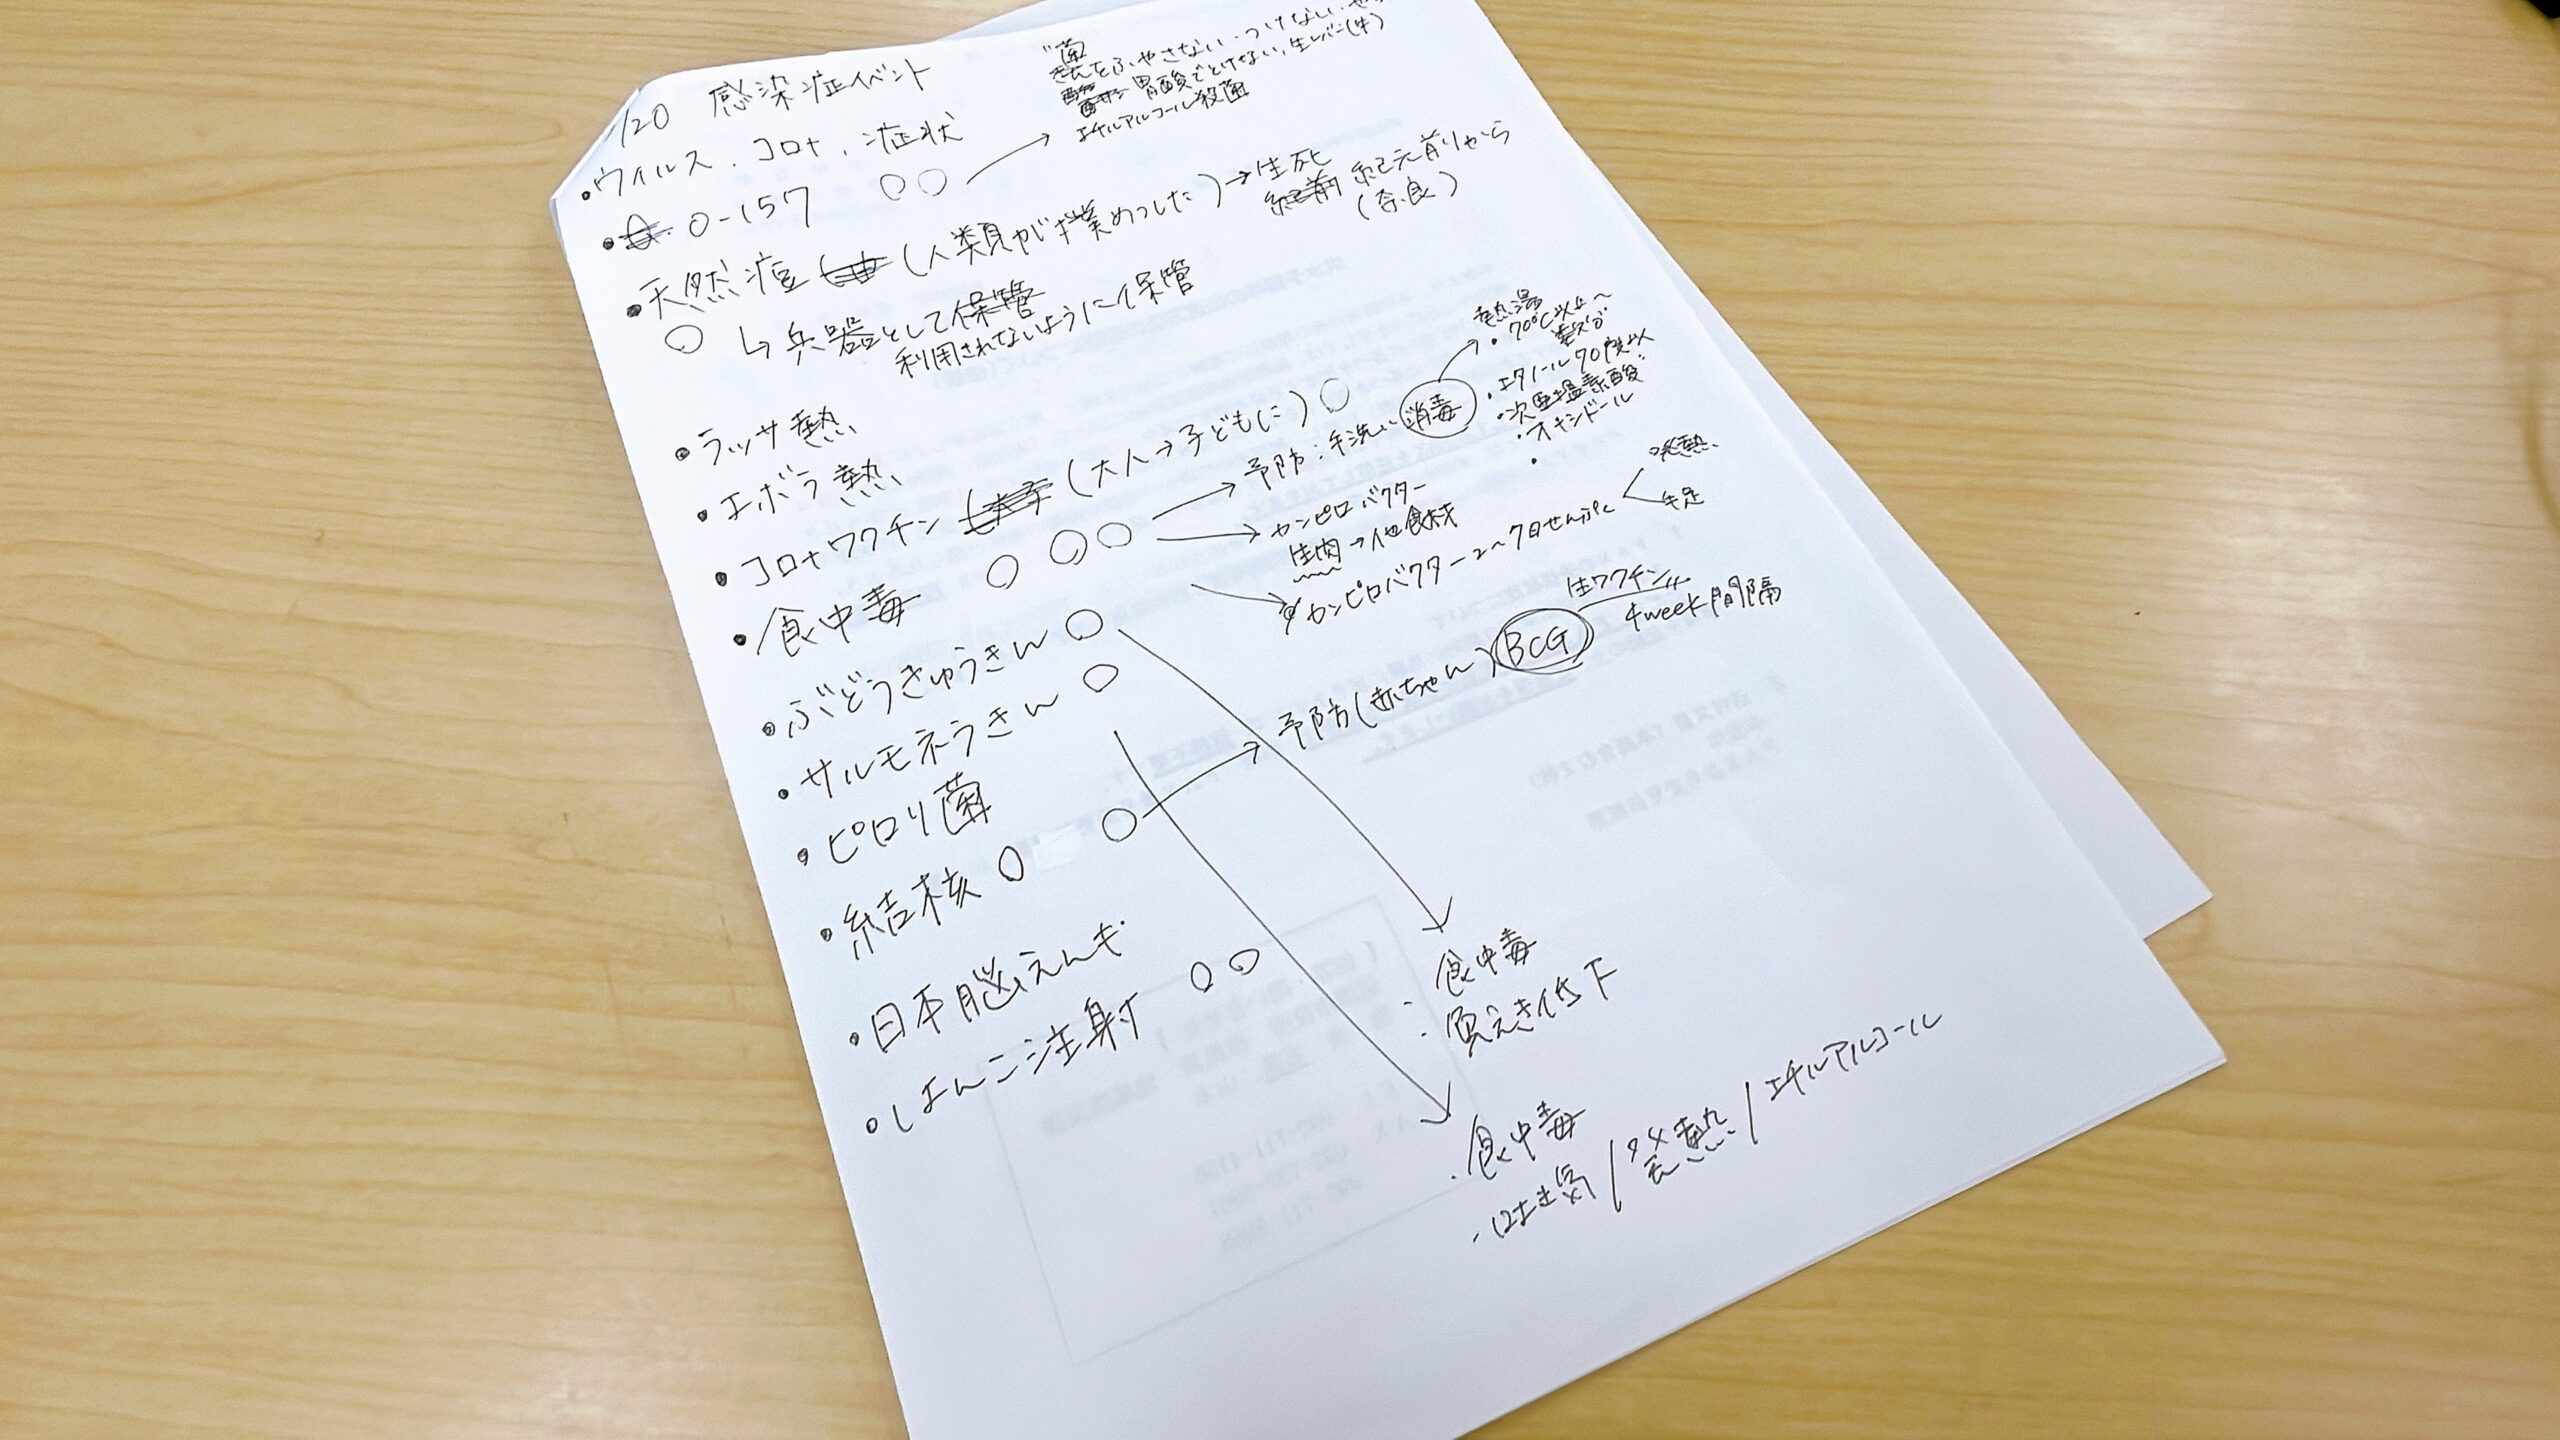 /20 感染症イベント
菌
をふやさない・つけない・
胃酸でとけない、生レバー(牛)
エチルアルコール殺菌
・ウイルス、コロナ、症状
・O-157 ○○
・天然痘 (人類がぼくめつした)→生死
紀元前から
(奈良)
○ ↳兵器として保管
利用されないように保管
・ラッサ熱
・エボラ熱
・コロナワクチン (大人→子どもに)○
・食中毒 ○ ○○
→予防:手洗い 消毒
熱湯
・70℃以上〜
・エタノール70度以
・次亜塩素酸
・オキシドール
・
→カンピロバクター
生肉→他食材
カンピロバクター2〜7日せんぷく
発熱
手足
・ぶどうきゅうきん ○
・サルモネラきん ○
・ピロリ菌
・結核 ○ ○
→予防(赤ちゃん)BCG
生ワクチン
4week間隔
・日本脳えんも
・はんこ注射 ○○
・食中毒
・免えき低下
・食中毒
・はき気/発熱/エチルアルコール